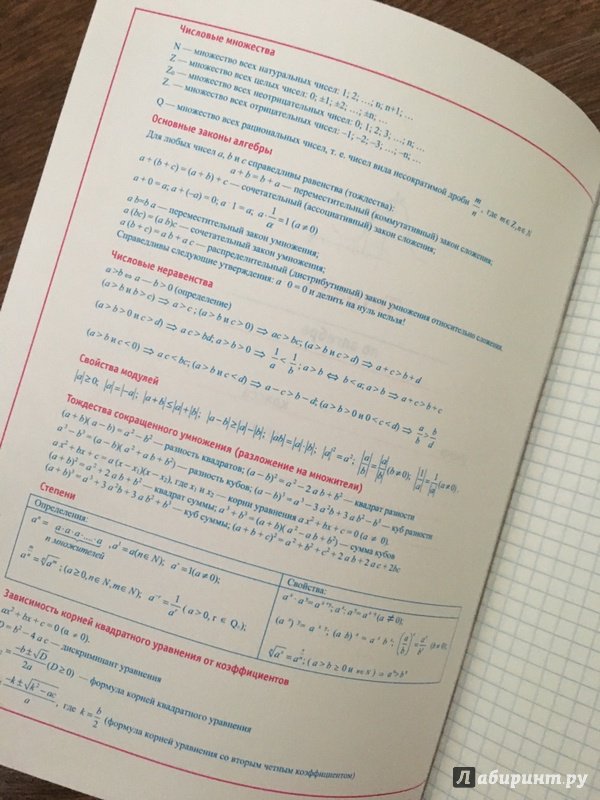 Числовые множества
N — множество всех натуральных чисел: 1; 2; ...; n; n+1; ...
Z — множество всех целых чисел: 0; ±1; ±2; ...; ±n; ...
Z₀ — множество всех неотрицательных чисел: 0; 1; 2; 3; ...; n; ...
Z — множество всех отрицательных чисел: –1; –2; –3; ...; –n; ...
Q — множество всех рациональных чисел, т. е. чисел вида несократимой дроби m/n, где m∈Z, n∈N
Основные законы алгебры
Для любых чисел a, b и c справедливы равенства (тождества):
a + b = b + a — переместительный (коммутативный) закон сложения;
a + (b + c) = (a + b) + c — сочетательный (ассоциативный) закон сложения;
a + 0 = a; a + (–a) = 0; a · 1 = a; a · 1/a = 1 (a ≠ 0)
a b = b a — переместительный закон умножения;
a (bc) = (a b)c — сочетательный закон умножения;
a (b + c) = a b + a c — распределительный (дистрибутивный) закон умножения относительно сложения.
Справедливы следующие утверждения: a · 0 = 0 и делить на нуль нельзя!
Числовые неравенства
a > b ⇔ a — b > 0 (определение)
(a > b и b > c) ⇒ a > c ; (a > b и c > 0) ⇒ ac > bc; (a > b и c > d) ⇒ a + c > b + d
(a > b > 0 и c > d) ⇒ ac > bd; a > b > 0 ⇒ 1/a < 1/b ; a > b ⇔ b < a; a > b ⇒ a + c > b + c
(a > b и c < 0) ⇒ ac < bc; (a > b и c < d) ⇒ a – c > b – d; (a > b > 0 и 0 < c < d) ⇒ a/c > b/d
Свойства модулей
|a| ≥ 0; |a| = |–a|; |a + b| ≤ |a| + |b|; |a – b| ≥ |a| – |b|; |ab| = |a| · |b|; |a|² = a²; |a/b| = |a|/|b| (b ≠ 0); |1/a| = 1/|a| (a ≠ 0).
Тождества сокращенного умножения (разложение на множители)
(a + b)(a – b) = a² – b² — разность квадратов; (a – b)² = a² – 2 a b + b² — квадрат разности
a³ – b³ = (a – b)(a² + a b + b²) — разность кубов; (a – b)³ = a³ – 3 a²b + 3 a b² – b³ — куб разности
a x² + b x + c = a (x – x₁)(x – x₂), где x₁ и x₂ — корни уравнения a x² + b x + c = 0 (a ≠ 0).
(a + b)² = a² + 2 a b + b² — квадрат суммы; a³ + b³ = (a + b)(a² – a b + b²) — сумма кубов
(a + b)³ = a³ + 3 a²b + 3 a b² + b³ — куб суммы; (a + b + c)² = a² + b² + c² + 2 a b + 2 a c + 2bc
Степени
Определения:
aⁿ = a·a·a·.....·a , a¹ = a (n ∈ N); a⁰ = 1 (a ≠ 0);
n множителей
; (a ≥ 0, n ∈ N, m ∈ N); a⁻ʳ = 1/aʳ ( a > 0, r ∈ Q.);
Свойства:
(a ≠ 0);
(b ≠ 0);
Зависимость корней квадратного уравнения от коэффициентов
ax² + bx + c = 0 (a ≠ 0).
D = b² – 4 a c — дискриминант уравнения
–b ± √D / 2a (D ≥ 0) — формула корней квадратного уравнения
–k ± √k² – ac / a , где k = b/2 (формула корней уравнения со вторым четным коэффициентом)
Лабиринт.ру